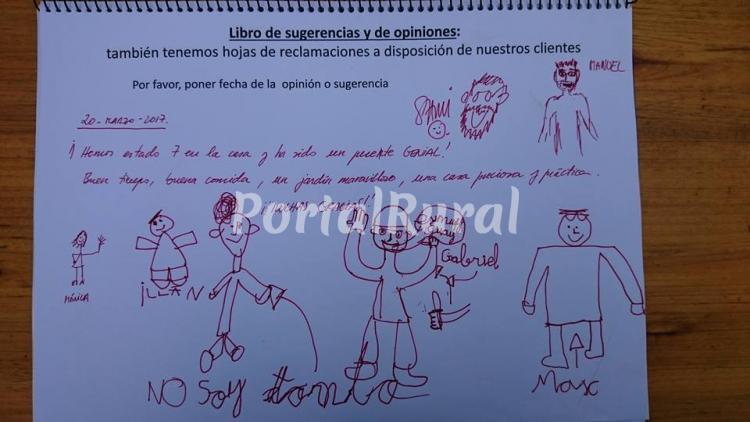 Libro de sugerencias y de opiniones:
también tenemos hojas de reclamaciones a disposición de nuestros clientes
Por favor, poner fecha de la opinión o sugerencia
MANUEL
20-MARZO-2017.
¡Hemos estado 7 en la casa y ha sido un puente GENIAL!
Buen tiempo, buena comida, un jardín maravilloso, una casa preciosa y práctica.
¡MUCHAS GRACIAS!
PortalRural
Gabriel
MÓNICA
iLLAN
NO SOY tonto